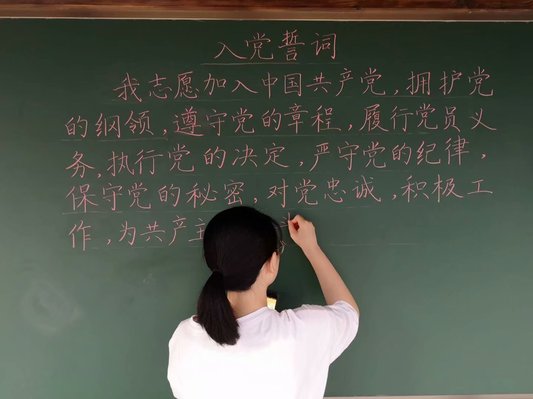 入党誓词
我志愿加入中国共产党,拥护党
的纲领,遵守党的章程,履行党员义
务,执行党的决定,严守党的纪律,
保守党的秘密,对党忠诚,积极工
作,为共产主